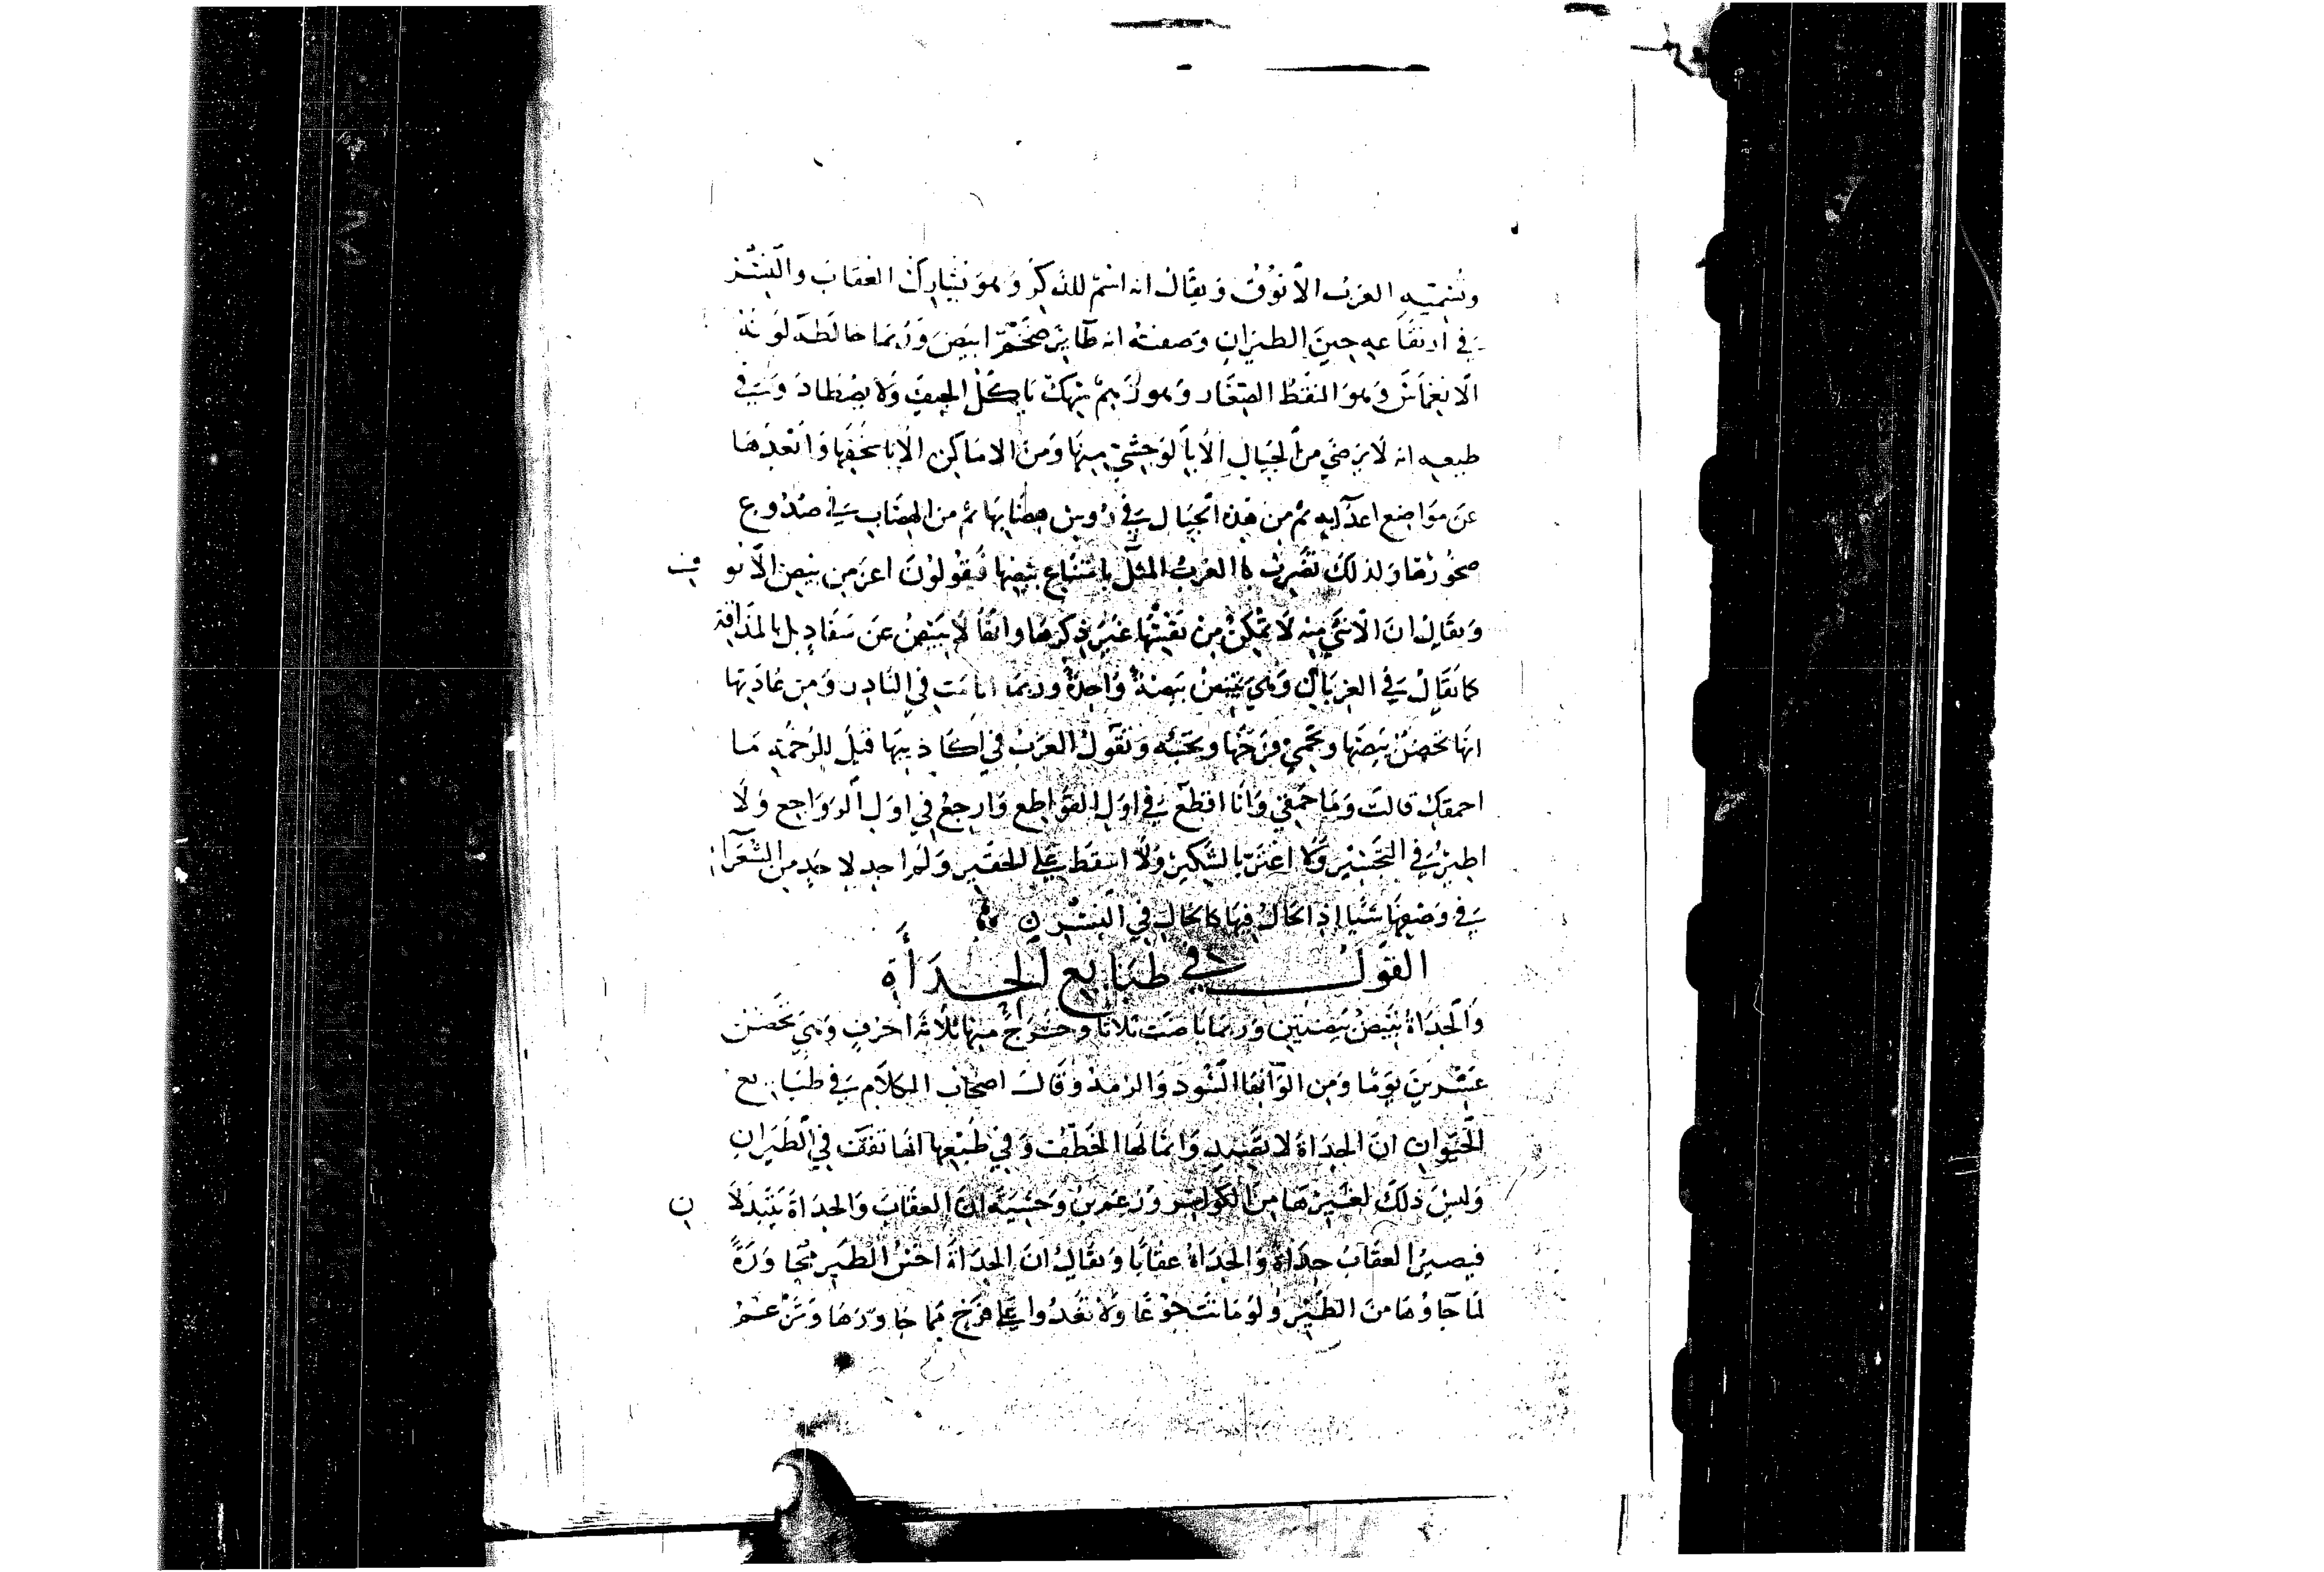 وتسميه العرب الأنوق ويقال انه اسم للذكر وهو يشارك العقاب والنسر
في ارتفاعه حين الطيران وصفته انه طاير ضخم ابيض وربما خالط لونه
وهو المنقط المنقار وهو نهم ياكل الجيف ولا يصطاد وفي
طبعه انه لا يرضى من الجبال الا بالوحشي منها ومن الاماكن الا باسحقها وابعدها
عن مواضع اعدآيه ثم من هذه الجبال في روس هضابها ثم من الهضاب في صدوع
صخورها ولذلك تضرب العرب المثل بامتناع بيضها فيقولون اعز من بيض الأنوق
ويقال ان الانثى منه لا تمكن من نفسها غير ذكرها وانها لا تبيض عن سفاد بل بالمذاقة
كما يقال في الغربان وهي تبيض بيضة واحدة وربما في النادر ومن عادتها
انها تحضن بيضها وتحمي فرخها وتحبه وتقول العرب في اكاذيبها قيل للرخمة ما
احمقك قالت وما حمقي وانا اقطع في اول القواطع وارجع في اول الرواجع ولا
اطير في التحسير ولا اغتر بالشكير ولا اسقط على الجفير ولم اجد لاحد من الشعرآء
في وصفها شيا اذ الحال فيها كالحال في النسر
القول في طبايع الحدأة
والحدأة تبيض بيضتين وربما باضت ثلاثا وخرج منها ثلاثة افرخ وهي تحضن
عشرين يوما ومن الوانها السود والرمد وقال اصحاب الكلام في طبايع
الحيوان ان الحدأة لا تصيد وانما لها الخطف وفي طبعها انها تقف في الطيران
وليس ذلك لغيرها من الكواسر وزعم بن وحشية ان العقاب والحدأة يتبدلان
فيصير العقاب حدأة والحدأة عقابا ويقال ان الحدأة احسن الطير مجاورة
لما جاورها من الطير ولو ماتت جوعا ولا تعدوا على فرخ ما جاورها وتزعم